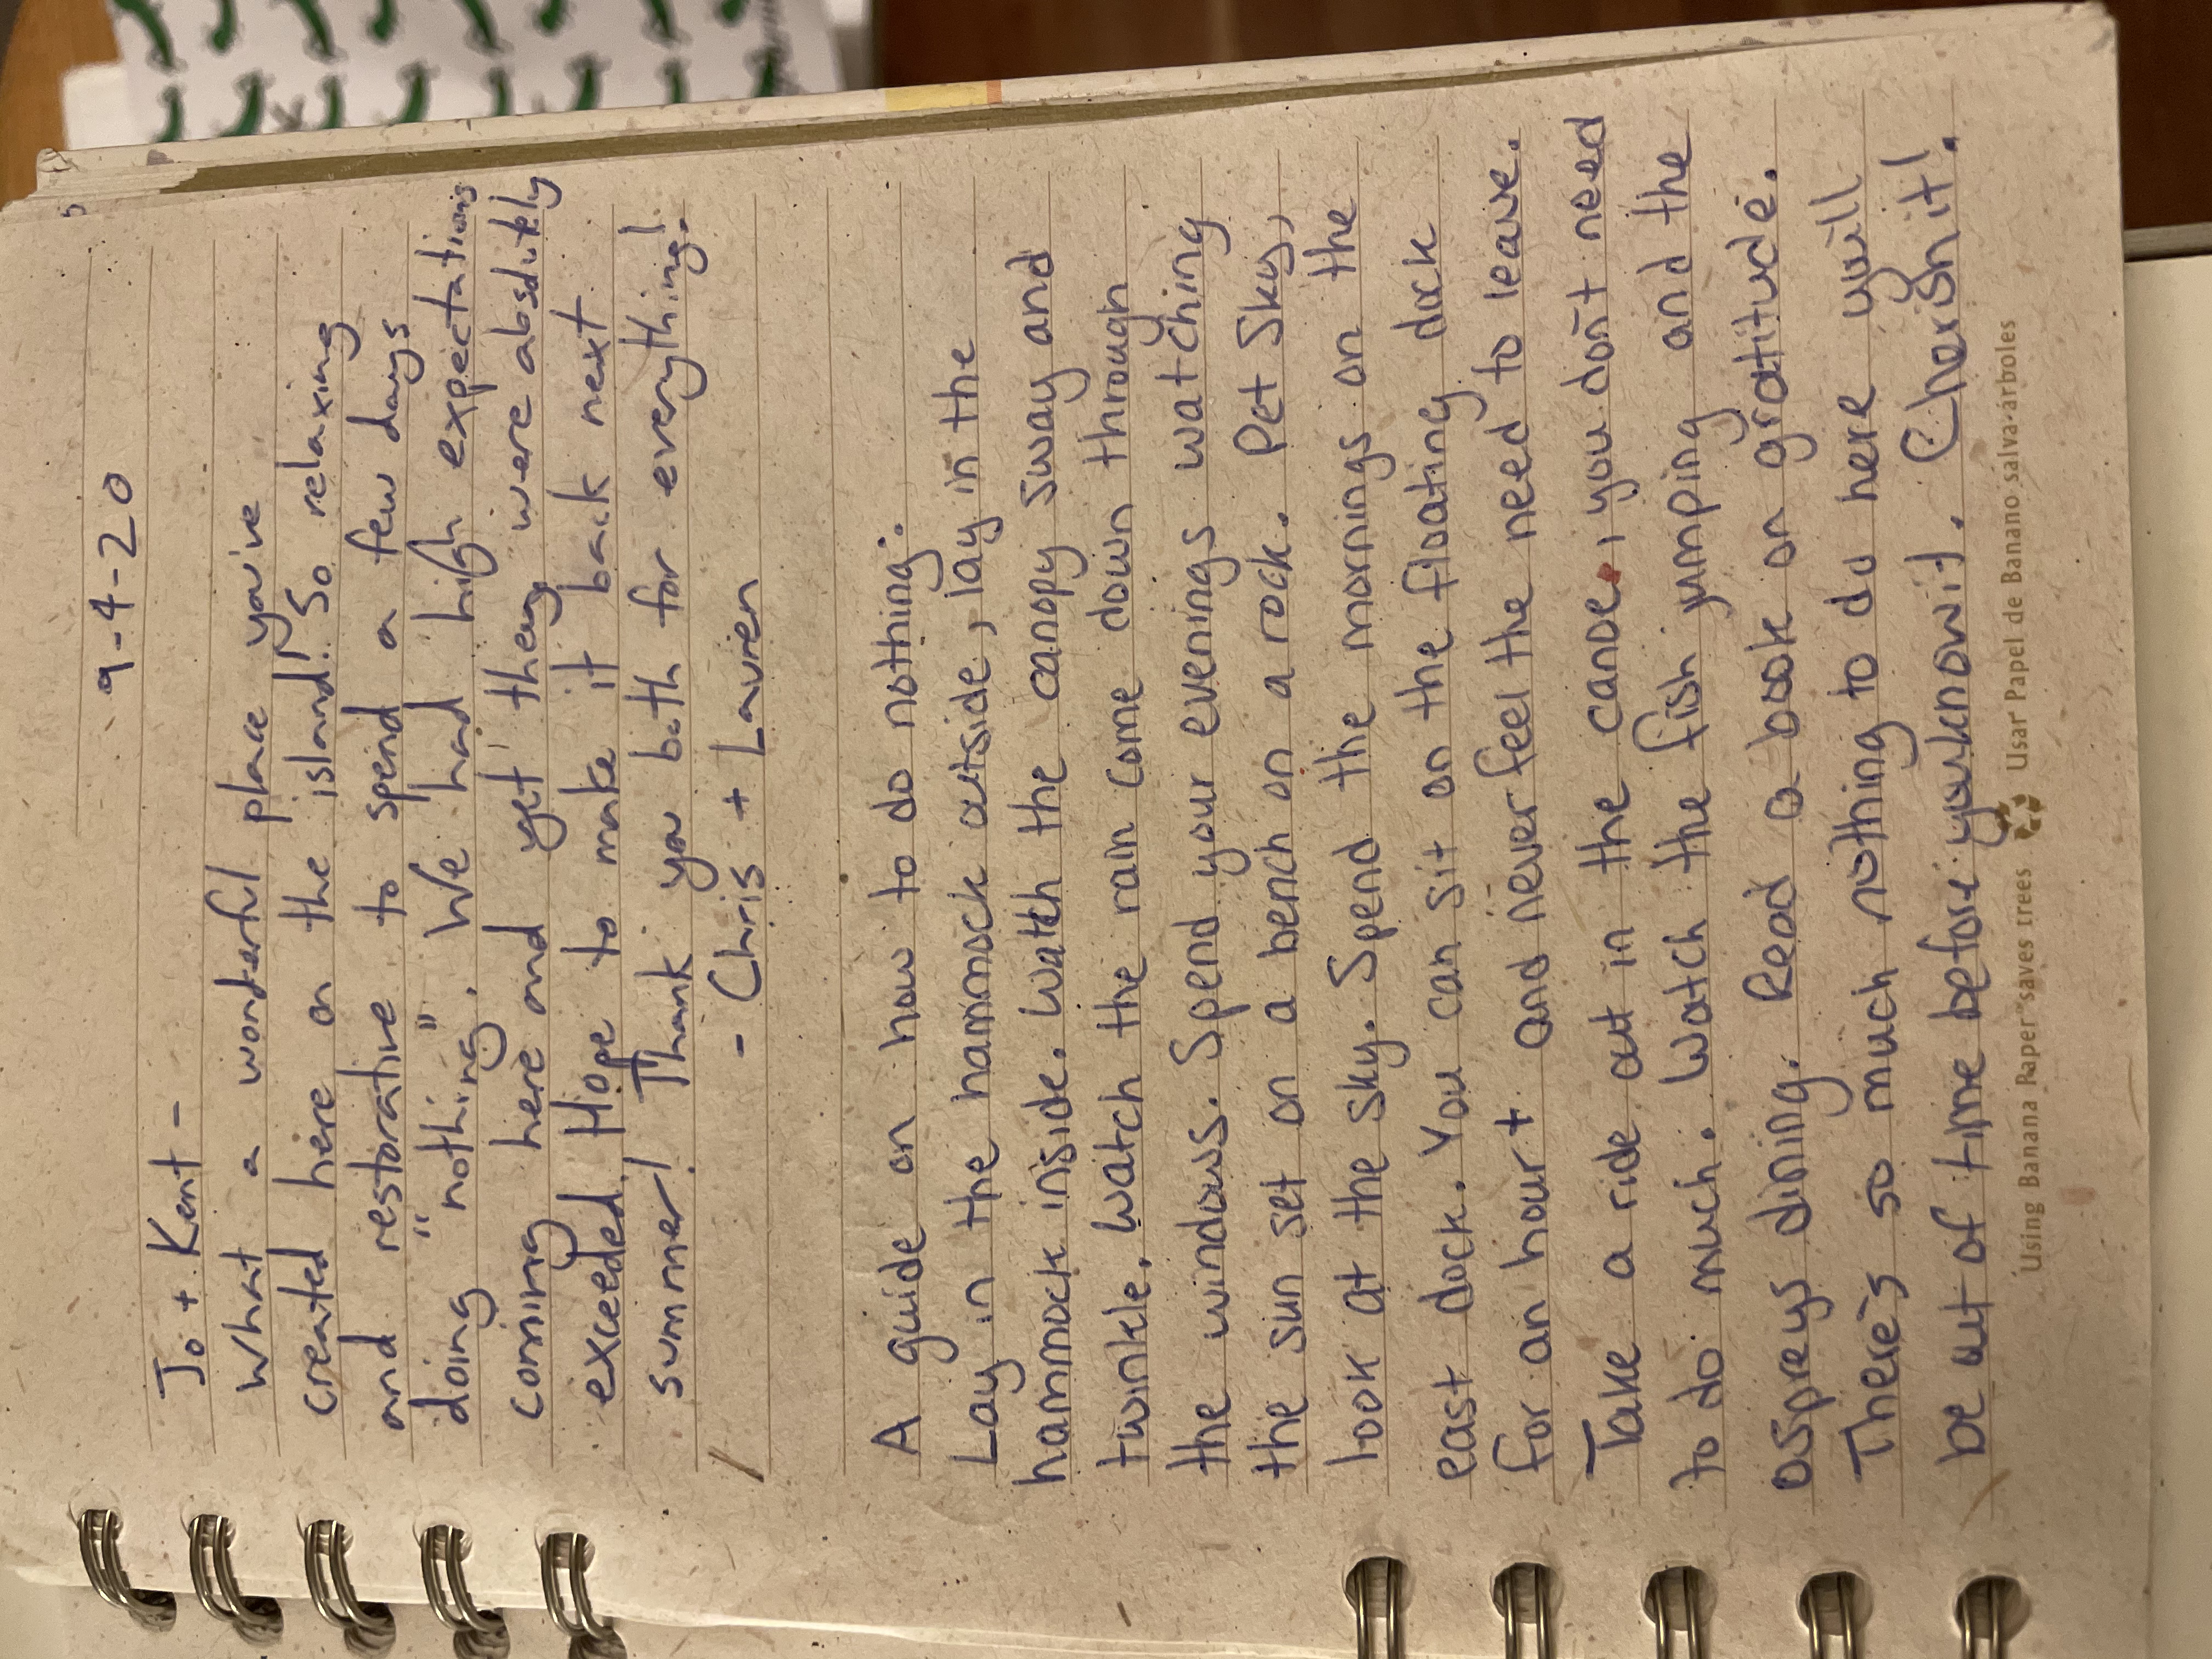 5
9-4-20
Jo + Kent -
What a wonderful place you've
created here on the island! So relaxing
and restorative to spend a few days
doing "nothing". We had high expectations
coming here and yet they were absolutely
exceeded. Hope to make it back next
summer! Thank you both for everything!
- Chris + Lauren
A guide on how to do nothing:
Lay in the hammock outside, lay in the
hammock inside. Watch the canopy sway and
twinkle. Watch the rain come down through
the windows. Spend your evenings watching
the sun set on a bench on a rock. Pet Sky,
look at the sky. Spend the mornings on the
east dock. You can sit on the floating dock
for an hour+ and never feel the need to leave.
Take a ride out in the canoe, you don't need
to do much. Watch the fish jumping and the
ospreys dining. Read a book on gratitude.
There's so much nothing to do here you'll
be out of time before you know it. Cherish it!
Using Banana Paper saves trees Usar Papel de Banano salva árboles